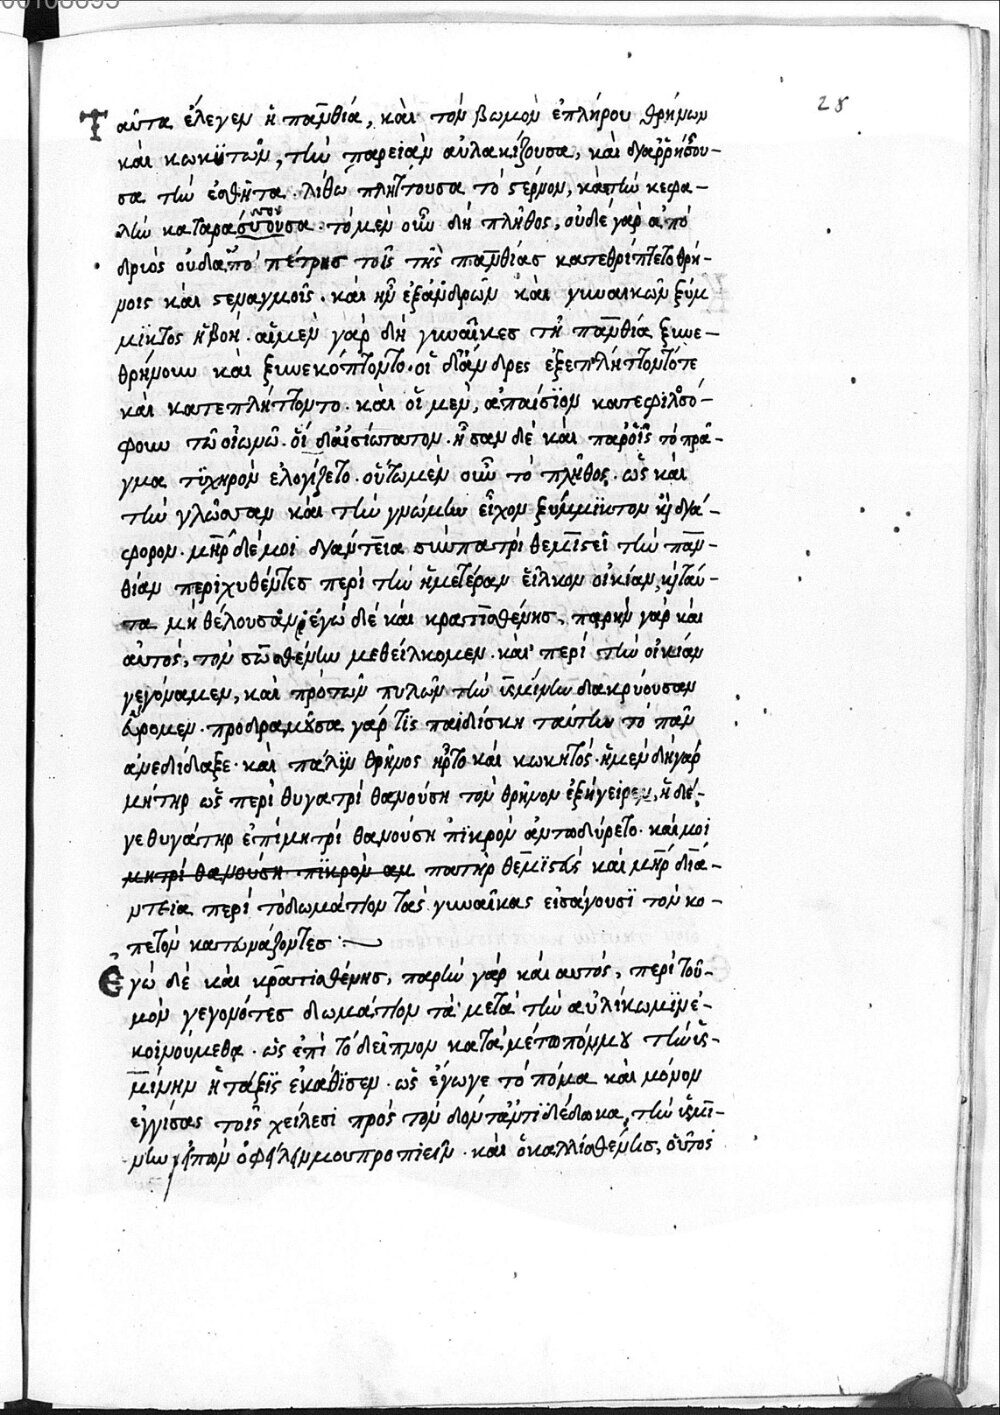 28
Ταῦτα ἔλεγεν ἡ πανθία, καὶ τὸν βωμὸν ἐπλήρου θρήνων
καὶ κωκϋτῶν, τὴν παρειὰν αὐλακίζουσα, καὶ διαῤῥήσσου-
σα τὴν ἐσθῆτα. λίθω πλήττουσα τὸ στέρνον, καὶ τὴν κεφα-
λὴν καταρα οὖσα. τὸ μὲν οὖν δὴ πλῆθος, οὐδὲ γὰρ ἀπὸ
δρυὸς οὐδ' ἀπὸ πέτρησ τοῖς τῆς πανθίασ κατεθρύπτετο θρή-
νοις καὶ στεναγμοῖς. καὶ ἦν ἐξ ἀνδρῶν καὶ γυναικῶν ξύμ
μϊκτος ἡ βοή. αἱ μὲν γὰρ δὴ γυναῖκεσ τῆ πανθία ξυνε-
θρήνουν καὶ ξυνεκόπτοντο. οἱ δ' ἄνδρες ἐξεπλήττοντό τε
καὶ κατεπλήττοντο. καὶ οἱ μὲν, ἀπαίσϊον κατεφιλοσό-
φουν τὸν οἰωνὸν. οἱ δ' αἰσιώτατον. ἦσαν δὲ καὶ παρ' οἷς τὸ πρᾶ-
γμα τϋχηρὸν ἐλογίζετο. οὕτω μὲν οὖν τὸ πλῆθος. ὡς καὶ
τὴν γλῶσσαν καὶ τὴν γνώμην εἶχον ξύμμϊκτον καὶ διά-
φορον. μὴρ δέ μοι διάντεια σὺν πατρὶ θεμιστεῖ τὴν παν-
θίαν περιχυθέντεσ περὶ τὴν ἡμετέραν εἷλκον οἰκίαν, καὶ ταύ-
τα μὴ θέλουσαν, ἐγὼ δὲ καὶ κρατισθένησ, παρῆν γὰρ καὶ
αὐτός, τὸν σωσθένην μεθείλκομεν. καὶ περὶ τὴν οἰκίαν
γεγόναμεν, καὶ πρὸ τῶν πυλῶν τὴν ὑσμίνην δακρύουσαν
εὕρομεν. προδραμοῦσα γάρ τις παιδίσκη ταύτην τὸ πᾶν
ἀνεδίδαξε. καὶ πάλιν θρῆνος ἦρτο καὶ κωκητός. ἡ μὲν δὴ γὰρ
μήτηρ ὡς περὶ θυγατρὶ θανούση τὸν θρῆνον ἐξήγειρεν, ἡ δέ,
γε θυγάτηρ ἐπὶ μητρὶ θανούση πϊκρὸν ἀντωδύρετο. καὶ μοι
μητρὶ θανούση πϊκρὸν αν πατὴρ θεμϊστὸς καὶ μὴρ διά-
ντεια περὶ τὸ δωμάτιον τὰς γυναῖκας εἰσάγουσϊ τὸν κο-
πετὸν κατευνάζοντεσ :
Ἐγὼ δὲ καὶ κρατισθένησ, παρῆν γὰρ καὶ αυτός, περὶ τοὐ-
μὸν γεγονότεσ δωμάτιον τὰ μετὰ τὴν αὐλὴν κωμϊνε-
κοινούμεθα. ὡς ἐπὶ τὸ δεῖπνον κατὰ μέτωπόν μου τὴν ὑσ-
μίνην ἡ τάξϊς ἐκάθϊσεν. ὡς ἔγωγε τὸ πόμα καὶ μόνον
ἐγγίσας τοῖς χείλεσι πρὸς τὸν διονταντϊδέδωκα, τὴν ὑσμί-
νην εἰπὼν ὀφείλην μου προπιεῖν. καὶ ὁ καλλισθένησ, οὗτοί